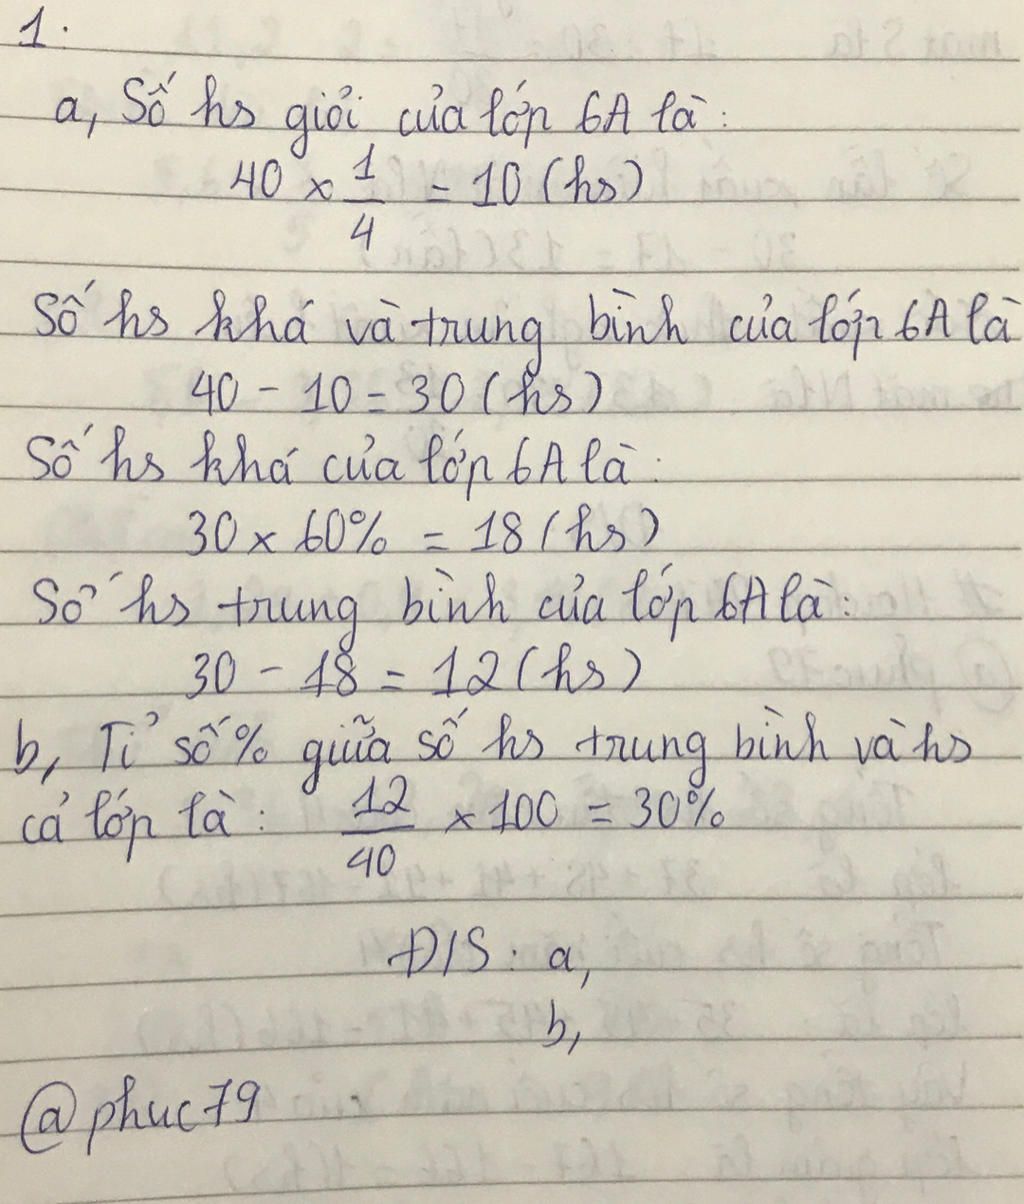 1.
a, Số hs giỏi của lớp 6A là:
40 × 1/4 = 10 (hs)
Số hs khá và trung bình của lớp 6A là
40 - 10 = 30 (hs)
Số hs khá của lớp 6A là:
30 × 60% = 18 (hs)
Số hs trung bình của lớp 6A là:
30 - 18 = 12 (hs)
b, Tỉ số % giữa số hs trung bình và hs
cả lớp là: 12/40 × 100 = 30%
Đ/S: a,
b,
@phuc79